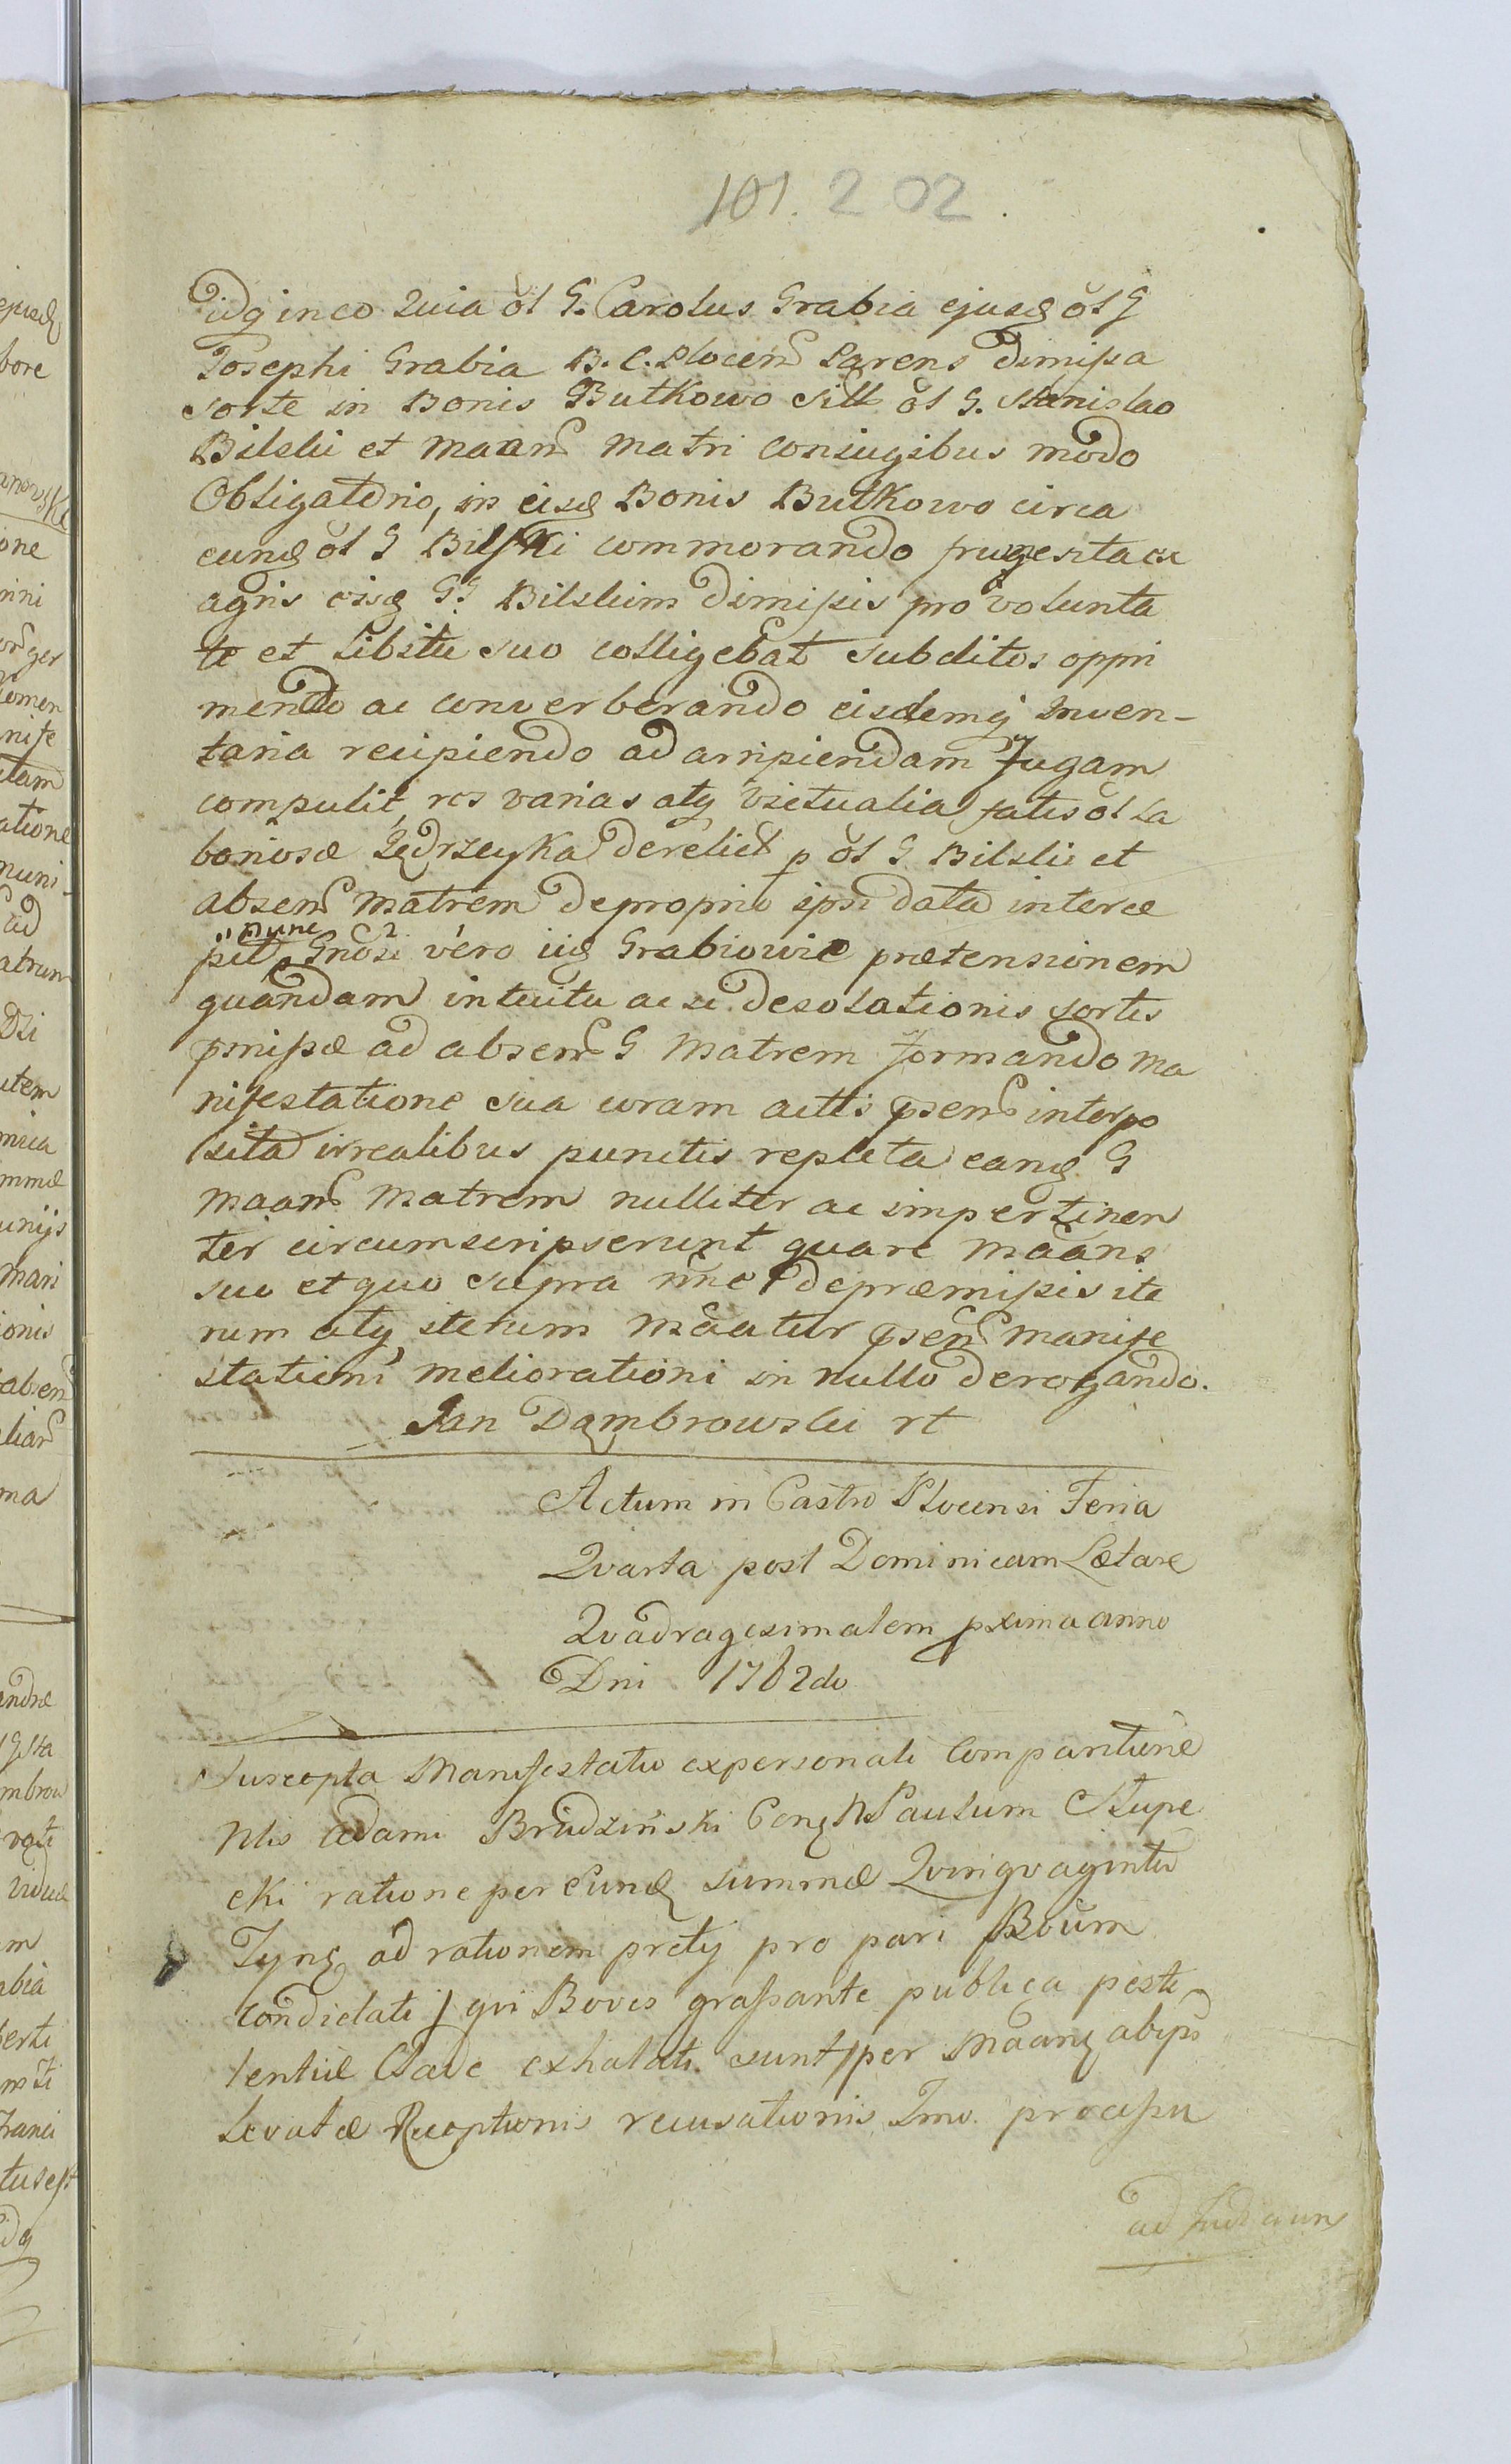 101. 202.
idq in eo Quia ol G. Carolus Grabia ejusd ol G
Josephi Grabia B. C. Plocen Parens dimissa
sorte in Bonis Butkowo sill ol G. Stanislao
Bilski et maan matri coniugibus modo
Obligatorio, in eisd Bonis Butkowo circa
eund ol G Bilski commorando frugesita ex
agris eisd GG Bilskim dimissis pro volunta
te et Libitu suo colligebat subditos oppri
mendo ac converberando eisdemq Inven-
taria recipiendo ad arripiendam Fugam
compulit, res varias atq victualia fatis ol La
boriosæ Jędrzeyka derelict p ol G Bilski et
absen Matrem de proprio ipsi data interce
pit nunc Gnosi vero iid Grabiowie prætensionem
quandam intuitu ac si desolationis sortis
pmissæ ad absen G Matrem formando ma
nifestatione sua coram actis psen interpo
sita irrealibus punctis repleta eand G
maan Matrem nulliter ac impertinen
ter circumscripserunt quare maans
suo et quo supra nne de præmissis ite
rum atq iterum maatur psen manife
stationi meliorationi in nullo derogando.
Jan Dąmbrowski rt
Actum in Castro Plocensi Feria
Qvarta post Dominicam Lætare
Qvadragesimalem pxima anno
Dni 1762do
Suscepta Manifestatio ex personali Comparitione
Nlis Adami Brudziński Conq N Paulum Słupe
cki ratione per Eund summæ Qvinqvaginta
Tynf ad rationem pretij pro pari Boum
condictati / qvi Boves grassante publica pesti
lentiæ Clade exhalati sunt / per Maanq ab ips
Levatæ Receptionis recusationis Imo processu
ad Judicium